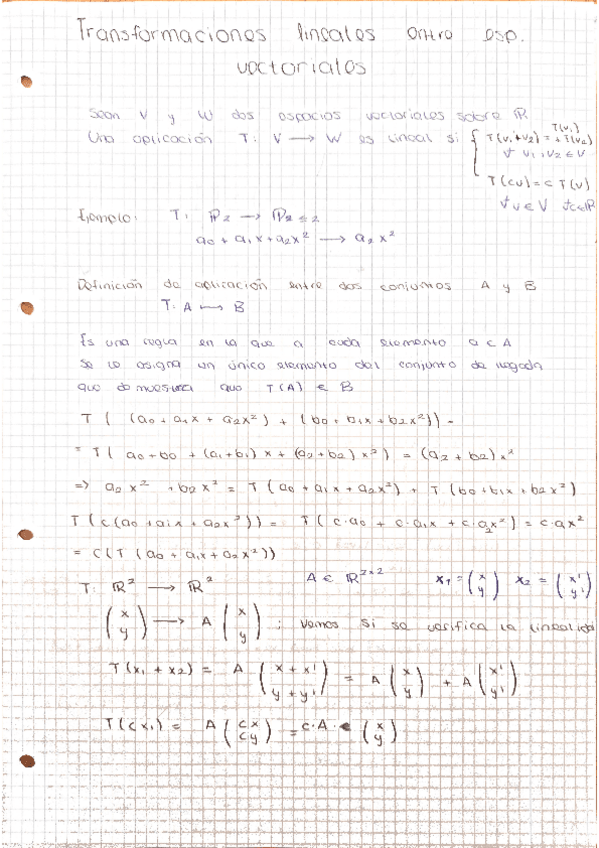 Transformaciones lineales entre esp.
vectoriales
Sean V y W dos espacios vectoriales sobre ℝ
Una aplicación T: V → W es lineal si { T(v₁+v₂) = T(v₁) + T(v₂)
∀ v₁, v₂ ∈ V
T(cv) = c T(v)
∀ v ∈ V ∀c∈ℝ
Ejemplo: T: ℙ₂ → ℙ₂ ≤ 2
a₀ + a₁x + a₂x² → a₂x²
Definición de aplicación entre dos conjuntos A y B
T: A → B
Es una regla en la que a cada elemento a ∈ A
se le asigna un único elemento del conjunto de llegada
que demuestra que T(A) ∈ B
T ( (a₀ + a₁x + a₂x²) + (b₀ + b₁x + b₂x²)) =
= T( a₀+b₀ + (a₁+b₁)x + (a₂+b₂)x²) = (a₂+b₂)x²
=> a₂x² + b₂x² = T(a₀ + a₁x + a₂x²) + T(b₀+b₁x+b₂x²)
T(c(a₀+a₁x+a₂x²)) = T(c·a₀ + c·a₁x + c·a₂x²) = c·ax²
= c(T(a₀ + a₁x + a₂x²))
T: ℝ² → ℝ² A ∈ ℝ²ˣ² x₁ = (x y) x₂ = (x' y')
(x y) → A (x y) ; vemos si se verifica la linealidad
T(x₁ + x₂) = A (x + x' y + y') = A (x y) + A (x' y')
T(cx₁) = A (cx cy) = c·A· (x y)